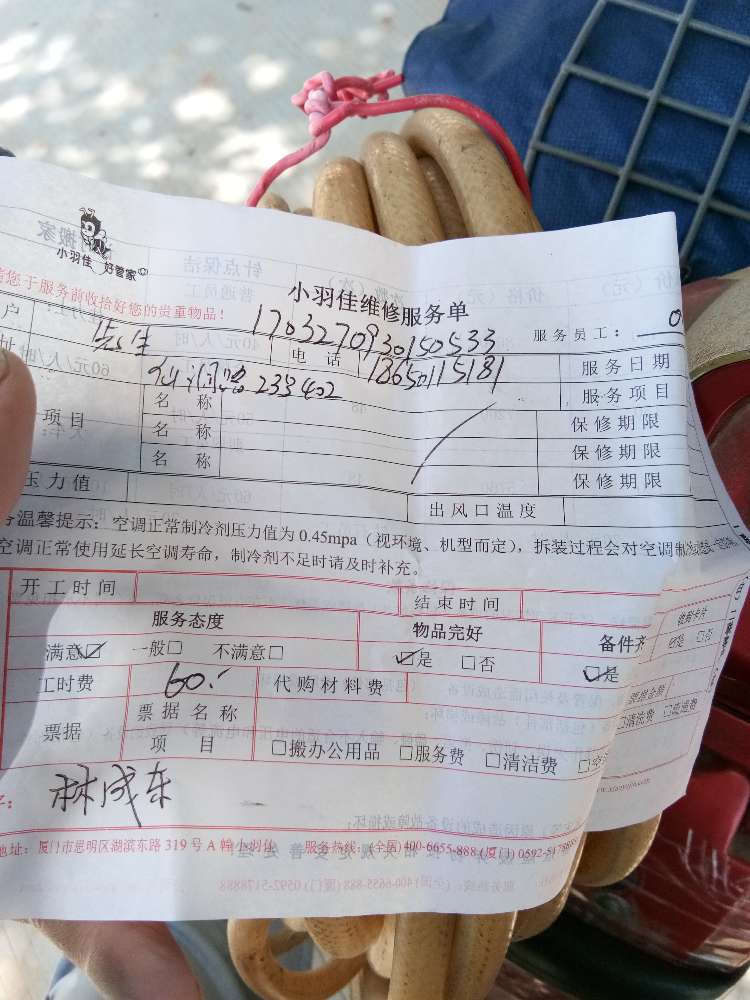 小羽佳 好管家
您于服务前收拾好您的贵重物品！
小羽佳维修服务单
1703270930150533
服务员工： 0
户 先生 电话 18650115181 服务日期
址 仙洞路233402 服务项目
项目 名称 保修期限
名称 保修期限
名称 保修期限
压力值 出风口温度
温馨提示：空调正常制冷剂压力值为 0.45mpa（视环境、机型而定），拆装过程会对空调制
空调正常使用延长空调寿命，制冷剂不足时请及时补充。
开工时间 结束时间
服务态度 物品完好 备件齐
满意☑ 一般□ 不满意□ ☑是 □否 ☑是
工时费 60.- 代购材料费
票据 票据名称
项目 □搬办公用品 □服务费 □清洁费
林成东
地址：厦门市思明区湖滨东路 319 号 A 幢小羽佳 服务热线：(全国)400-6655-888 (厦门) 0592-5178888